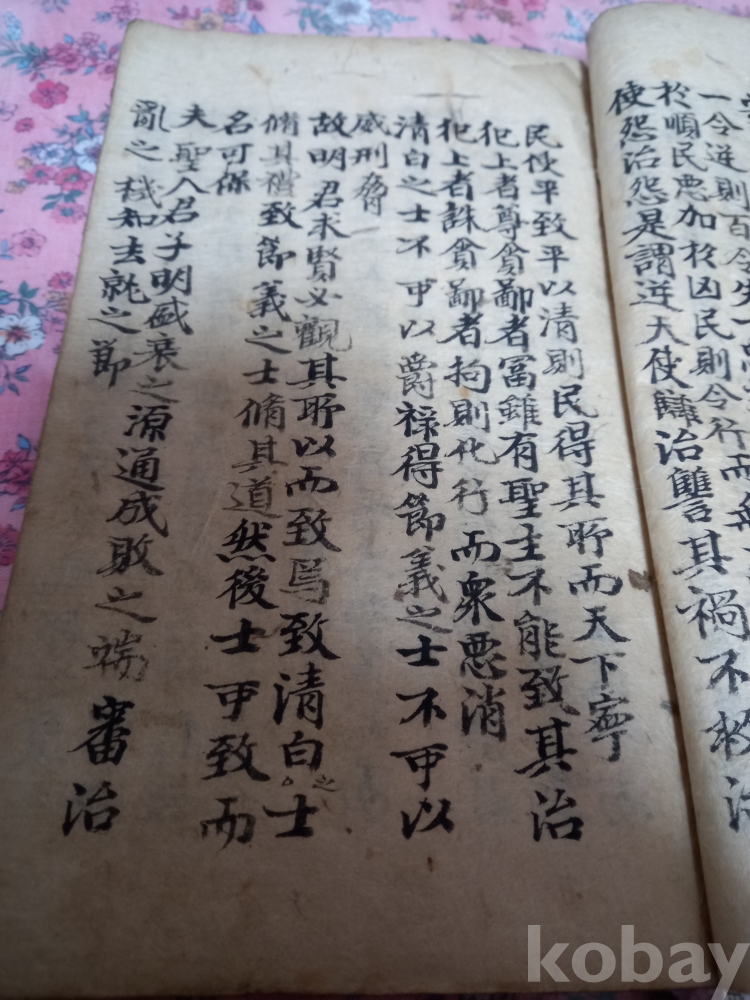 一令逆則百令失一
於順民惡加於凶民則令行而無
使怨治怨是謂逆天使讎治讐其禍不救治
民使平致平以清則民得其所而天下寧
犯上者尊貪鄙者富雖有聖主不能致其治
犯上者誅貪鄙者拘則化行而衆惡消
清白之士不可以爵祿得節義之士不可以
威刑脅
故明君求賢必觀其所以而致焉致清白之士
脩其禮致節義之士脩其道然後士可致而
名可保
夫聖人君子明盛衰之源通成敗之端審治
亂之機知去就之節
kobay